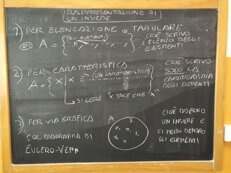 RAPPRESENTAZIONE DI
UN INSIEME
1) PER ELENCAZIONE O TABULARE
A = { , , , }
CIOÈ SCRIVO
L'ELENCO DEGLI
ELEMENTI
2) PER CARATTERISTICA
A = { X | X È }
CIOÈ SCRIVO
SOLO LA
CARATTERISTICA
DEGLI ELEMENTI
SI LEGGE X TALE CHE X
3) PER VIA GRAFICA
COL DIAGRAMMA DI
EULERO-VENN
A
CIOÈ DISEGNO
UN INSIEME E
CI METTO DENTRO
GLI ELEMENTI